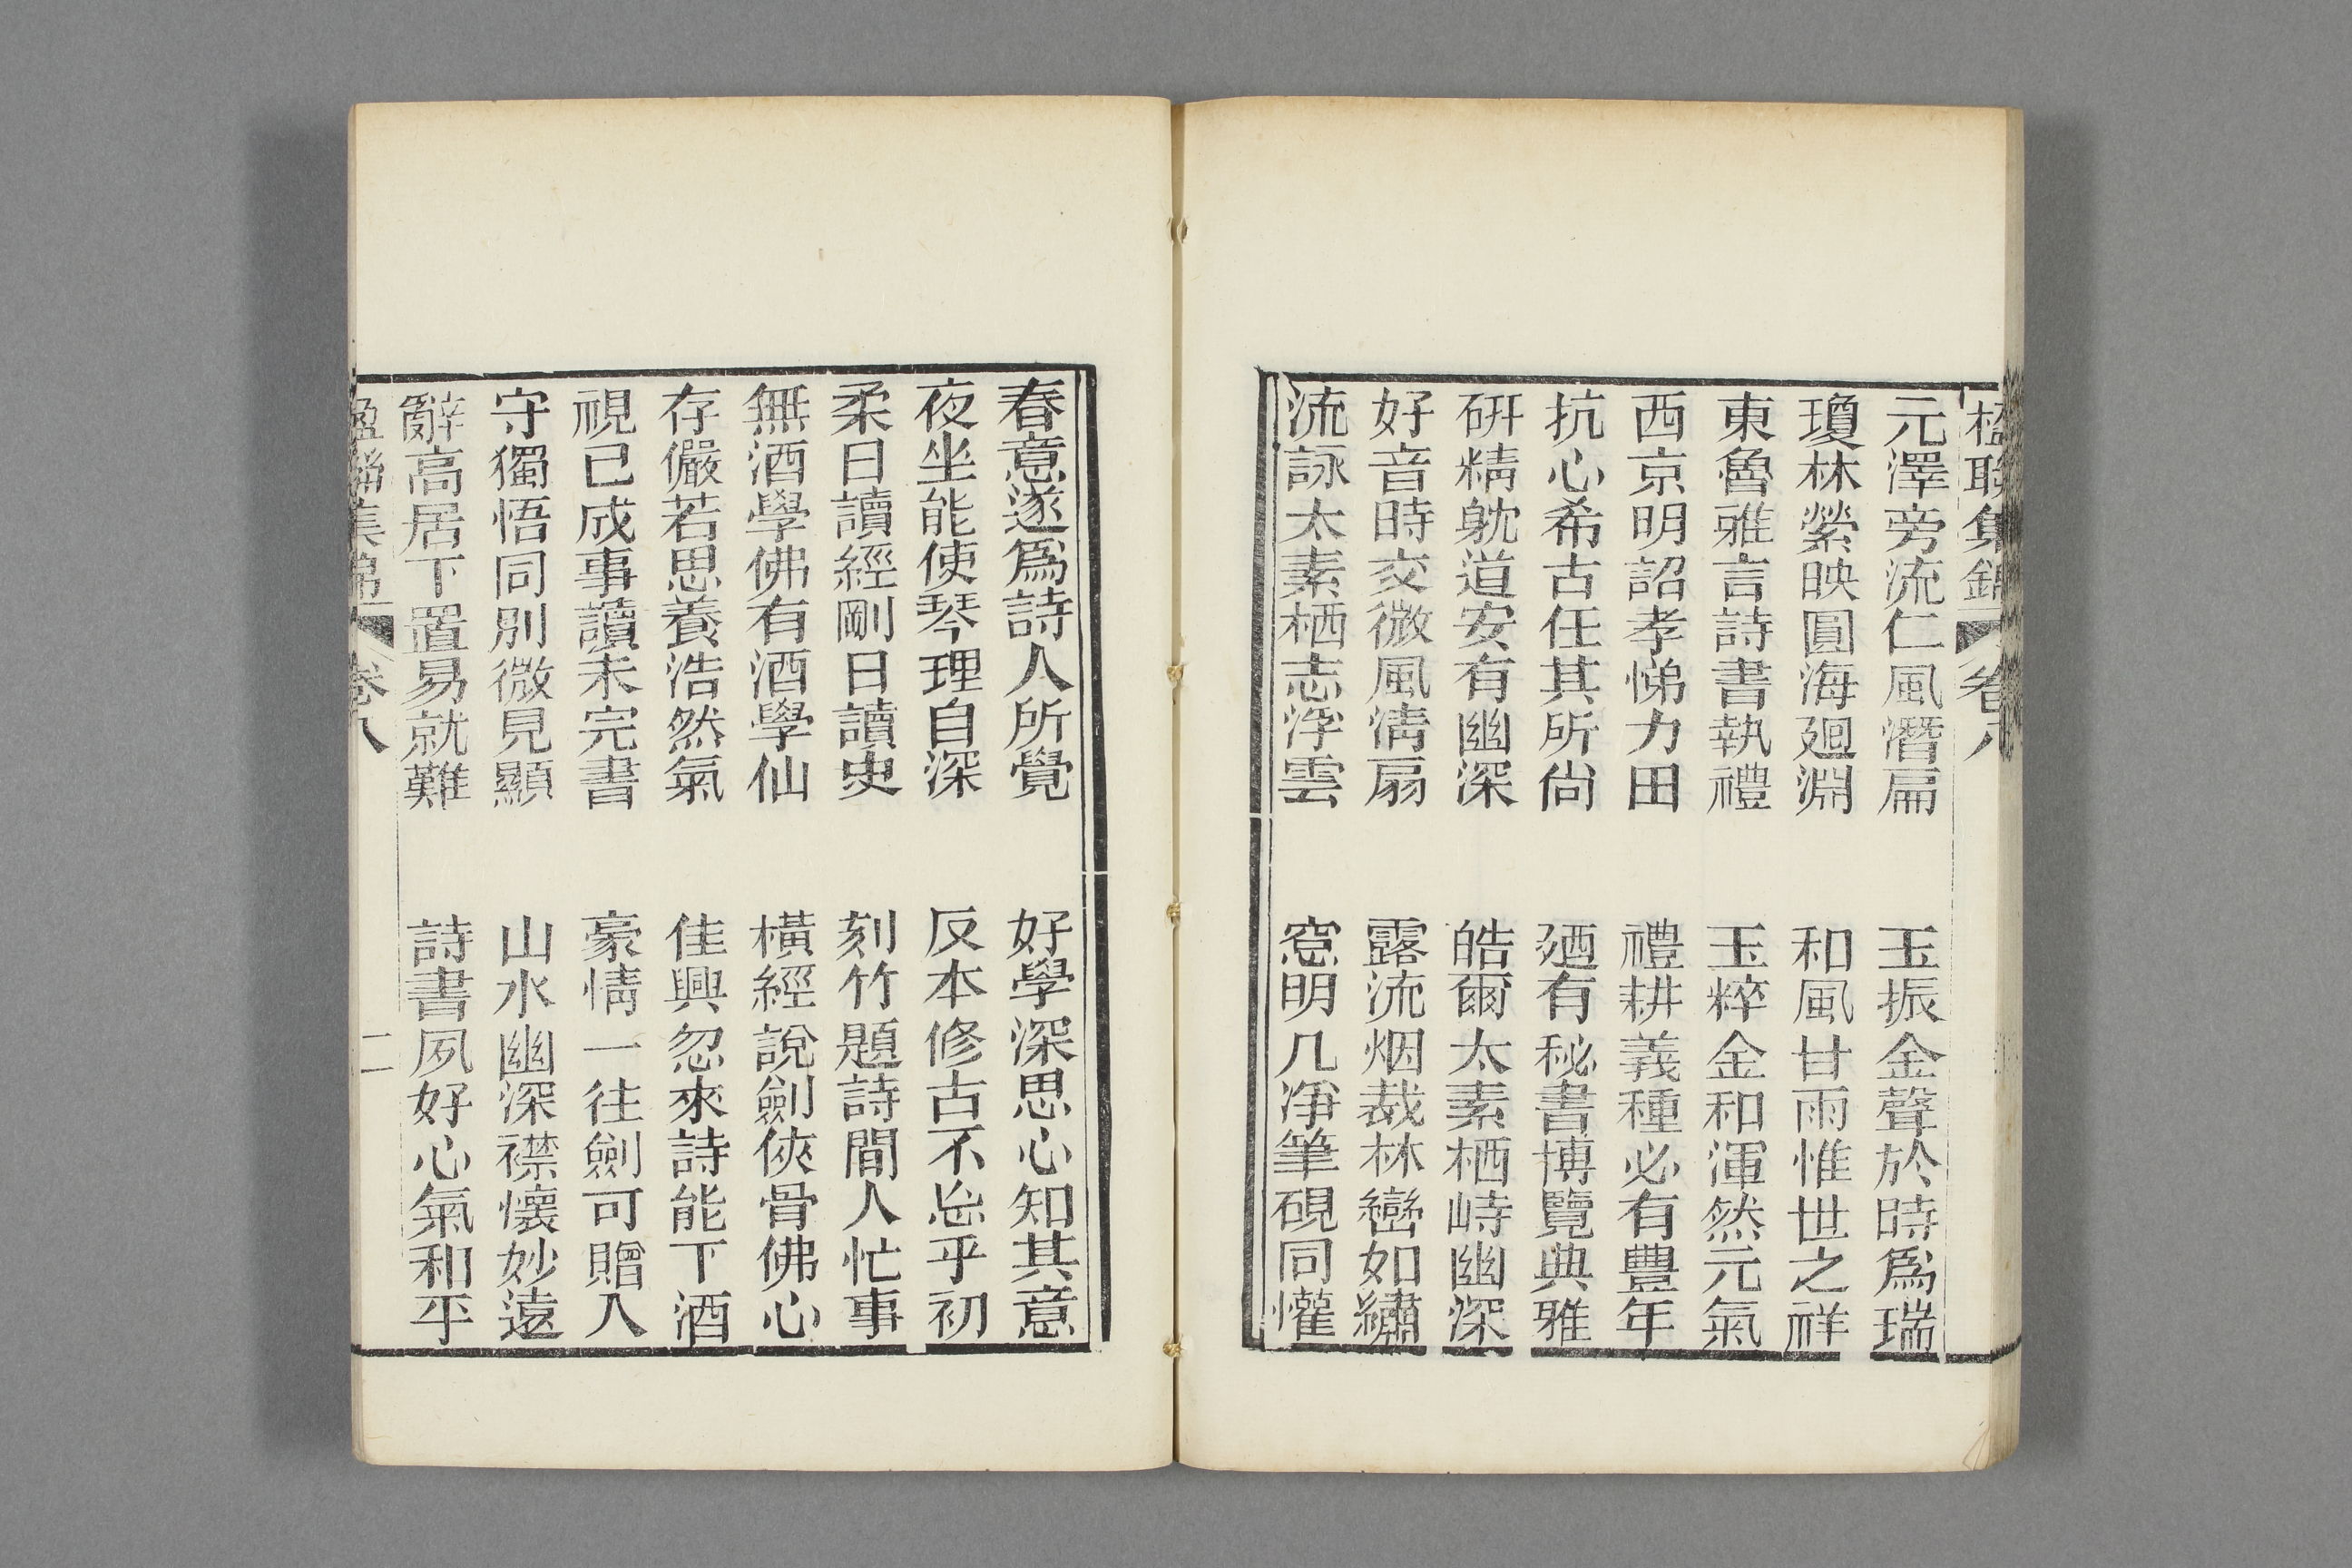 楹聯集錦 卷八
元澤旁流仁風潛扇 玉振金聲於時爲瑞
瓊林縈映圓海廻淵 和風甘雨惟世之祥
東魯雅言詩書執禮 玉粹金和渾然元氣
西京明詔孝悌力田 禮耕義種必有豐年
抗心希古任其所尙 廼有秘書博覽典雅
硏精躭道安有幽深 皓爾太素栖峙幽深
好音時交微風淸扇 露流烟裁林巒如繡
流詠太素栖志浮雲 窓明几凈筆硯同懽
春意遂爲詩人所覺 好學深思心知其意
夜坐能使琴理自深 反本修古不忘乎初
柔日讀經剛日讀史 刻竹題詩間人忙事
無酒學佛有酒學仙 橫經說劍俠骨佛心
存儼若思養浩然氣 佳興忽來詩能下酒
視已成事讀未完書 豪情一往劍可贈人
守獨悟同別微見顯 山水幽深襟懷妙遠
辭高居下置易就難 詩書夙好心氣和平
楹聯集錦 卷八 二